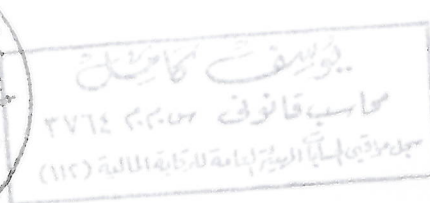 يوسف كامل
محاسب قانوني س.م.م ٣٧٦٤
سجل مراقبى الحسابات الهيئة العامة للرقابة المالية (١١٢)